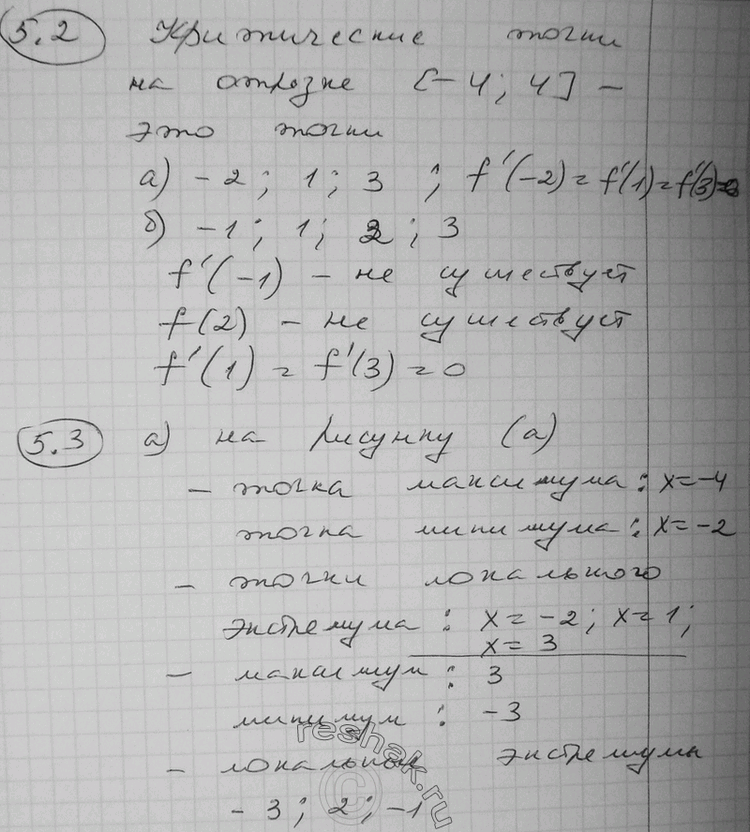 5.2 Критические точки
на отрезке [-4; 4] –
это точки
а) -2; 1; 3 ; f'(-2) = f'(1) = f'(3) = 0
б) -1; 1; 2; 3
f'(-1) – не существует
f(2) – не существует
f'(1) = f'(3) = 0
5.3 а) на рисунку (а)
– точка максимума: x=-4
точка минимума: x=-2
– точки локального
экстремума: x=-2; x=1;
x=3
– максимум: 3
минимум: -3
– локальные экстремумы
-3; 2; -1
reshak.ru